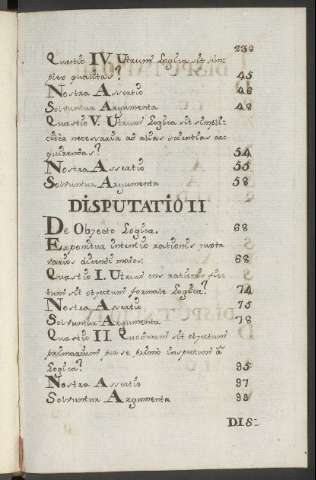 230
Quæstio IV Utrum Logica sit sim-
plex qualitas? 45
Nostra Assertio 48
Solvuntur Argumenta 48
Quæstio V. Utrum Logica sit simplici-
ter necessaria ad alias scientias ac-
quirendas? 54
Nostra Assertio 55
Solvuntur Argumenta 58
DISPUTATIO II
De Objecto Logicæ. 68
Exponitur intentio rationis juxta
varios dicendi modos. 68
Quæstio I. Utrum ens rationis sit
objectum formale Logicæ? 74
Nostra Assertio 75
Solvuntur Argumenta 78
Quæstio II. Quodnam sit objectum
primarium per se primo inspectum à
Logica? 95
Nostra Assertio 97
Solvuntur Argumenta 98
DIS-